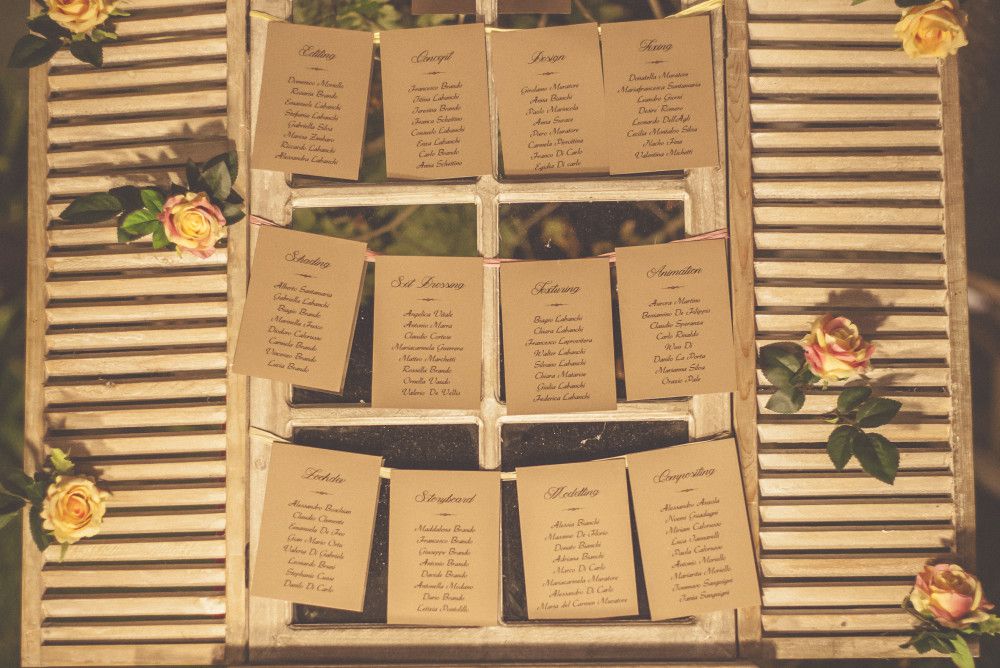 Editing
Domenico Moriello
Rosaria Brando
Emanuele Labanchi
Stefania Labanchi
Gabriella Silvia
Marisa Zambaro
Riccardo Labanchi
Alessandra Labanchi
Concept
Francesco Brando
Titina Labanchi
Teresina Brando
Franca Schettino
Consuelo Labanchi
Enza Labanchi
Carlo Brando
Anna Schettino
Design
Girolamo Muratore
Anna Bianchi
Paolo Marincola
Anna Surace
Piero Muratore
Carmela Pierottina
Franco Di Carlo
Egidia Di carlo
Fixing
Donatella Muratore
Mariafrancesca Santamaria
Leandro Giorni
Desire Romero
Leonardo Dell'Agli
Cecilia Montalvo Silvia
Nacho Fima
Valentina Michetti
Shading
Alberto Santamaria
Gabriella Labanchi
Biagio Brando
Marinella Fusco
Diodoro Cafarosse
Carmela Brando
Vincenzo Brando
Lucia Brando
Set Dressing
Angelica Vitale
Antonio Marra
Claudio Cortese
Mariacarmela Guerrera
Matteo Marchetti
Rossella Brando
Ornella Vaiado
Valerio De Vella
Texturing
Biagio Labanchi
Chiara Labanchi
Francesco Laprovitera
Walter Labanchi
Silvano Labanchi
Chiara Matarise
Giulia Labanchi
Federica Labanchi
Animation
Aurora Martino
Beniamino De Filippis
Claudio Speranza
Carlo Rinaldo
Wan Di
Danilo La Porta
Marianna Silvia
Orazio Pale
Lookdev
Alessandro Bruschan
Claudio Clemente
Emanuela De Feo
Gian Mario Orta
Valerio Di Gabriele
Leonardo Bruni
Stephania Casse
Danilo Di Carlo
Storyboard
Maddalena Brando
Francesco Brando
Giuseppe Brando
Antonio Brando
Davide Brando
Antonella Modano
Dario Brando
Letizia Pontoldillo
Modelling
Alessia Bianchi
Massimo De Florio
Donato Bianchi
Adriana Bianchi
Marco Di Carlo
Mariacarmela Muratore
Alessandro Di Carlo
Maria del Carmen Muratore
Compositing
Alessandro Asuola
Noemi Guadagni
Miriam Cafarosse
Luca Iannarelli
Paola Cafarosse
Antonio Moriello
Mariarita Moriello
Tommaso Sanguigni
Tania Sanguigni